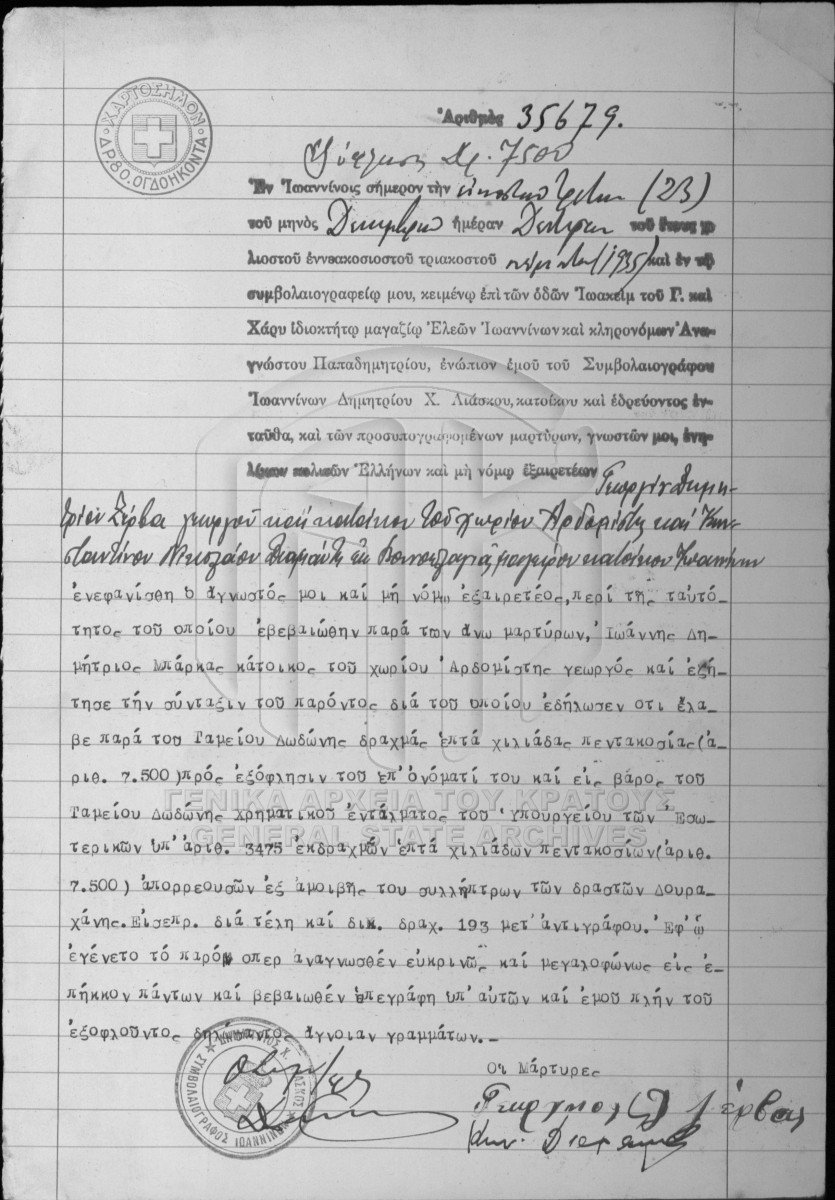 ΧΑΡΤΟΣΗΜΟΝ
ΔΡ.80.ΟΓΔΟΗΚΟΝΤΑ
Ἀριθμὸς 35679.
Ἐξόφλησις Δρ. 7500
Ἐν Ἰωαννίνοις σήμερον τὴν εἰκοστὴν τρίτην (23)
τοῦ μηνὸς Δεκεμβρίου ἡμέραν Δευτέραν τοῦ ἔτους χι-
λιοστοῦ ἐννεακοσιοστοῦ τριακοστοῦ πέμπτου (1935) καὶ ἐν τῷ
συμβολαιογραφείῳ μου, κειμένῳ ἐπὶ τῶν ὁδῶν Ἰωακεὶμ τοῦ Γ. καὶ
Χάρυ ἰδιοκτήτῳ μαγαζίῳ Ἐλεῶν Ἰωαννίνων καὶ κληρονόμων Ἀνα-
γνώστου Παπαδημητρίου, ἐνώπιον ἐμοῦ τοῦ Συμβολαιογράφου
Ἰωαννίνων Δημητρίου Χ. Λιάσκου, κατοίκου καὶ ἑδρεύοντος ἐν-
ταῦθα, καὶ τῶν προσυπογραφομένων μαρτύρων, γνωστῶν μοι, ἐνη-
λίκων πολιτῶν Ἑλλήνων καὶ μὴ νόμῳ ἐξαιρετέων Γεωργίου Δημη-
τρίου Ζέρβα γεωργοῦ καὶ κατοίκου τοῦ χωρίου Ἀρδομίστης καὶ Κων-
σταντίνου Νικολάου Διαμάντη ἐκ μαγείρου κατοίκου Ἰωαννίνων
ἐνεφανίσθη ὁ ἄγνωστός μοι καί μή νόμῳ ἐξαιρετέος, περί τῆς ταὐτό-
τητος τοῦ ὁποίου ἐβεβαιώθην παρά των ἄνω μαρτύρων, Ἰωάννης Δη-
μήτριος Μπάρκας κάτοικος τοῦ χωρίου Ἀρδομίστης γεωργός καί ἐζή-
τησε τήν σύνταξιν τοῦ παρόντος διά τοῦ ὁποίου ἐδήλωσεν οτι ἔλα-
βε παρά του Ταμείου Δωδώνης δραχμάς ἑπτά χιλιάδας πεντακοσίας(ἀ-
ριθ. 7.500)πρός ἐξόφλησιν τοῦ ἐπ'ὀνόματί του καί εἰς βάρος τοῦ
Ταμείου Δωδώνης χρηματικοῦ ἐντάλματος τοῦ Ὑπουργείου τῶν Ἐσω-
τερικῶν ὑπ'ἀριθ. 3475 ἐκδραχμῶν ἑπτά χιλιάδων πεντακοσίων(ἀριθ.
7.500) ἀπορρεουσῶν ἐξ ἀμοιβῆς του συλλήπτρων τῶν δραστῶν Δουρα-
χάνης. Εἰσεπρ. διά τέλη καί δικ. δραχ. 193 μετ'ἀντιγράφου. Ἐφ'ᾧ
ἐγένετο τό παρόν οπερ ἀναγνωσθέν εὐκρινῶς καί μεγαλοφώνως εἰς ἐ-
πήκκον πάντων καί βεβαιωθέν ὑπεγράφη ὑπ'αὐτῶν καί ἐμοῦ πλήν τοῦ
ἐξοφλοῦντος δηλώσαντος ἄγνοιαν γραμμάτων.-
Οἱ Μάρτυρες
Γεώργιος Δ Ζέρβας
Κων. Διαμάντης
ΣΥΜΒΟΛΑΙΟΓΡΑΦΟΣ ΙΩΑΝΝΙΝΩΝ
ΓΕΝΙΚΑ ΑΡΧΕΙΑ ΤΟΥ ΚΡΑΤΟΥΣ
GENERAL STATE ARCHIVES